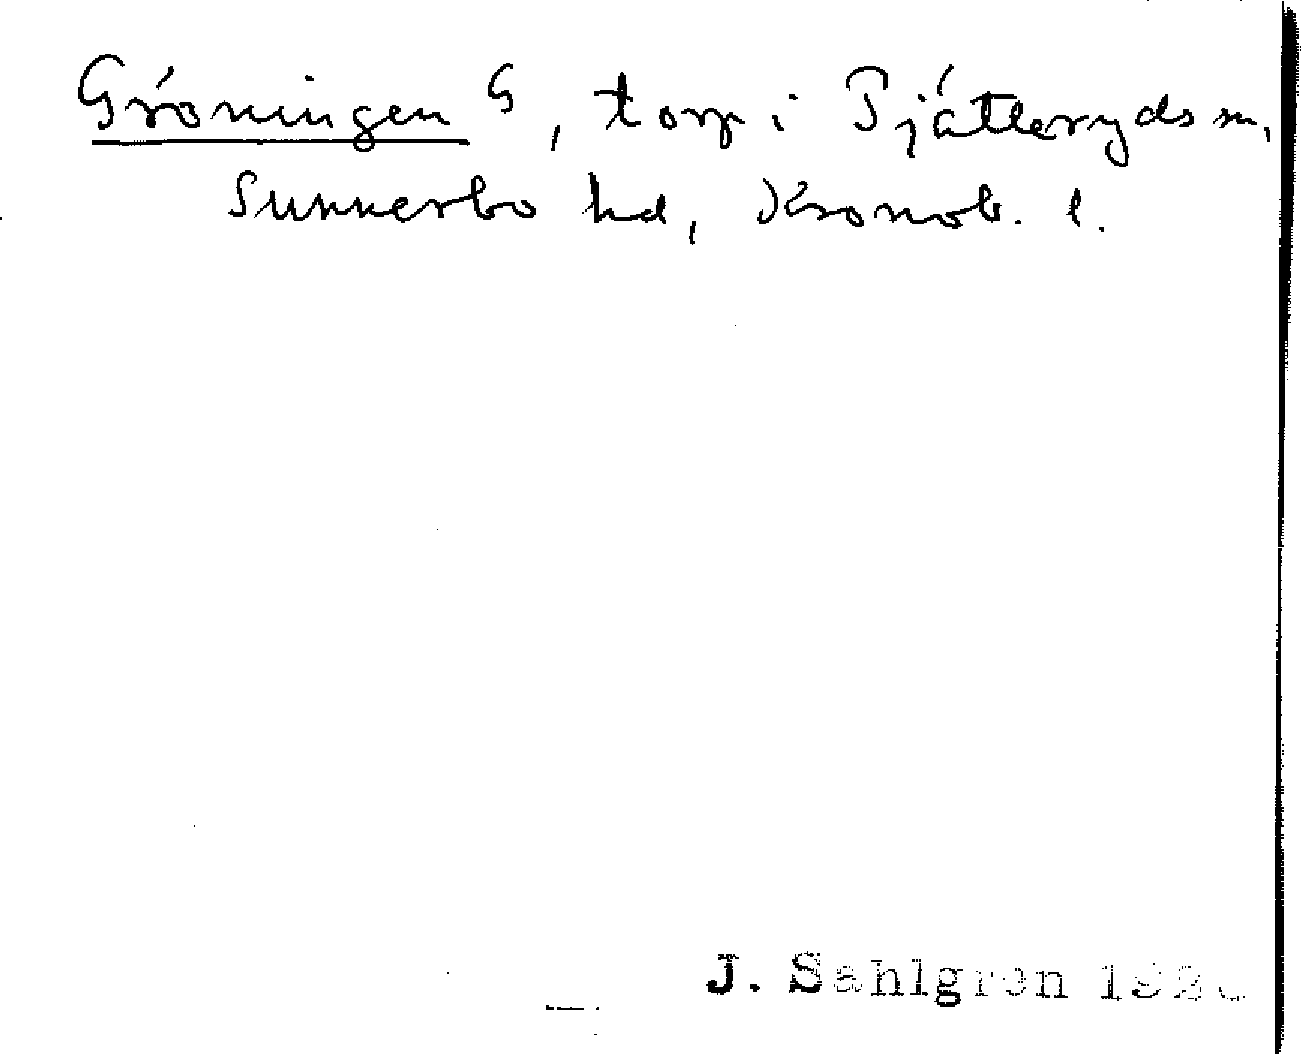 Gröningen G, torp i Pjätteryds sn,
Sunnerbo hd, Kronob. l.
J. Sahlgren